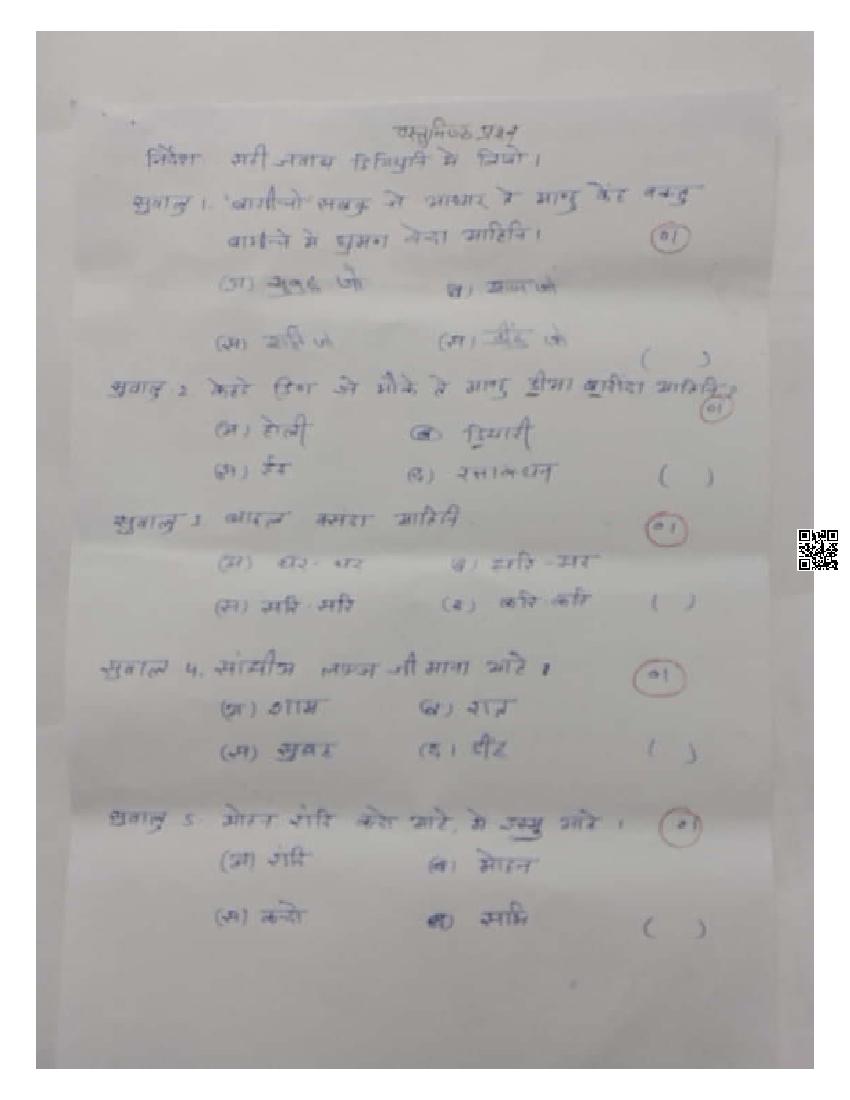 वस्तुनिष्ठ प्रश्न
निर्देश सही जवाब डिसिपुति में लिखो ।
सुवालु 1. बागीचो सबकु जे आधार ते माण्हु केह वक्तु
बागीचे में घुमण वेंदा आहिनि। 01
(अ) सुबुह जो (ब) शाम जो
(स) राति जो (द) डींह जो ( )
सुवालु 2 केहडे डिण जे मौके ते माण्हु डीआ बारींदा आहिनि ? 01
(अ) होली (ब) डियारी
(स) ईद (द) रक्षाबंधन ( )
सुवालु 3 बादल वसंदा आहिनि 01
(अ) घर-घर (ब) झरि-झर
(स) सरि-सरि (द) करि-करि ( )
सुवालु 4. सांझीअ लफ्ज जी माना आहे । 01
(अ) शाम (ब) रात
(स) सुबह (द) डींह ( )
सुवालु 5. मोहन रांदि करे आहे, में इस्मु आहे । 01
(अ) रांदि (ब) मोहन
(स) करे (द) सभि ( )